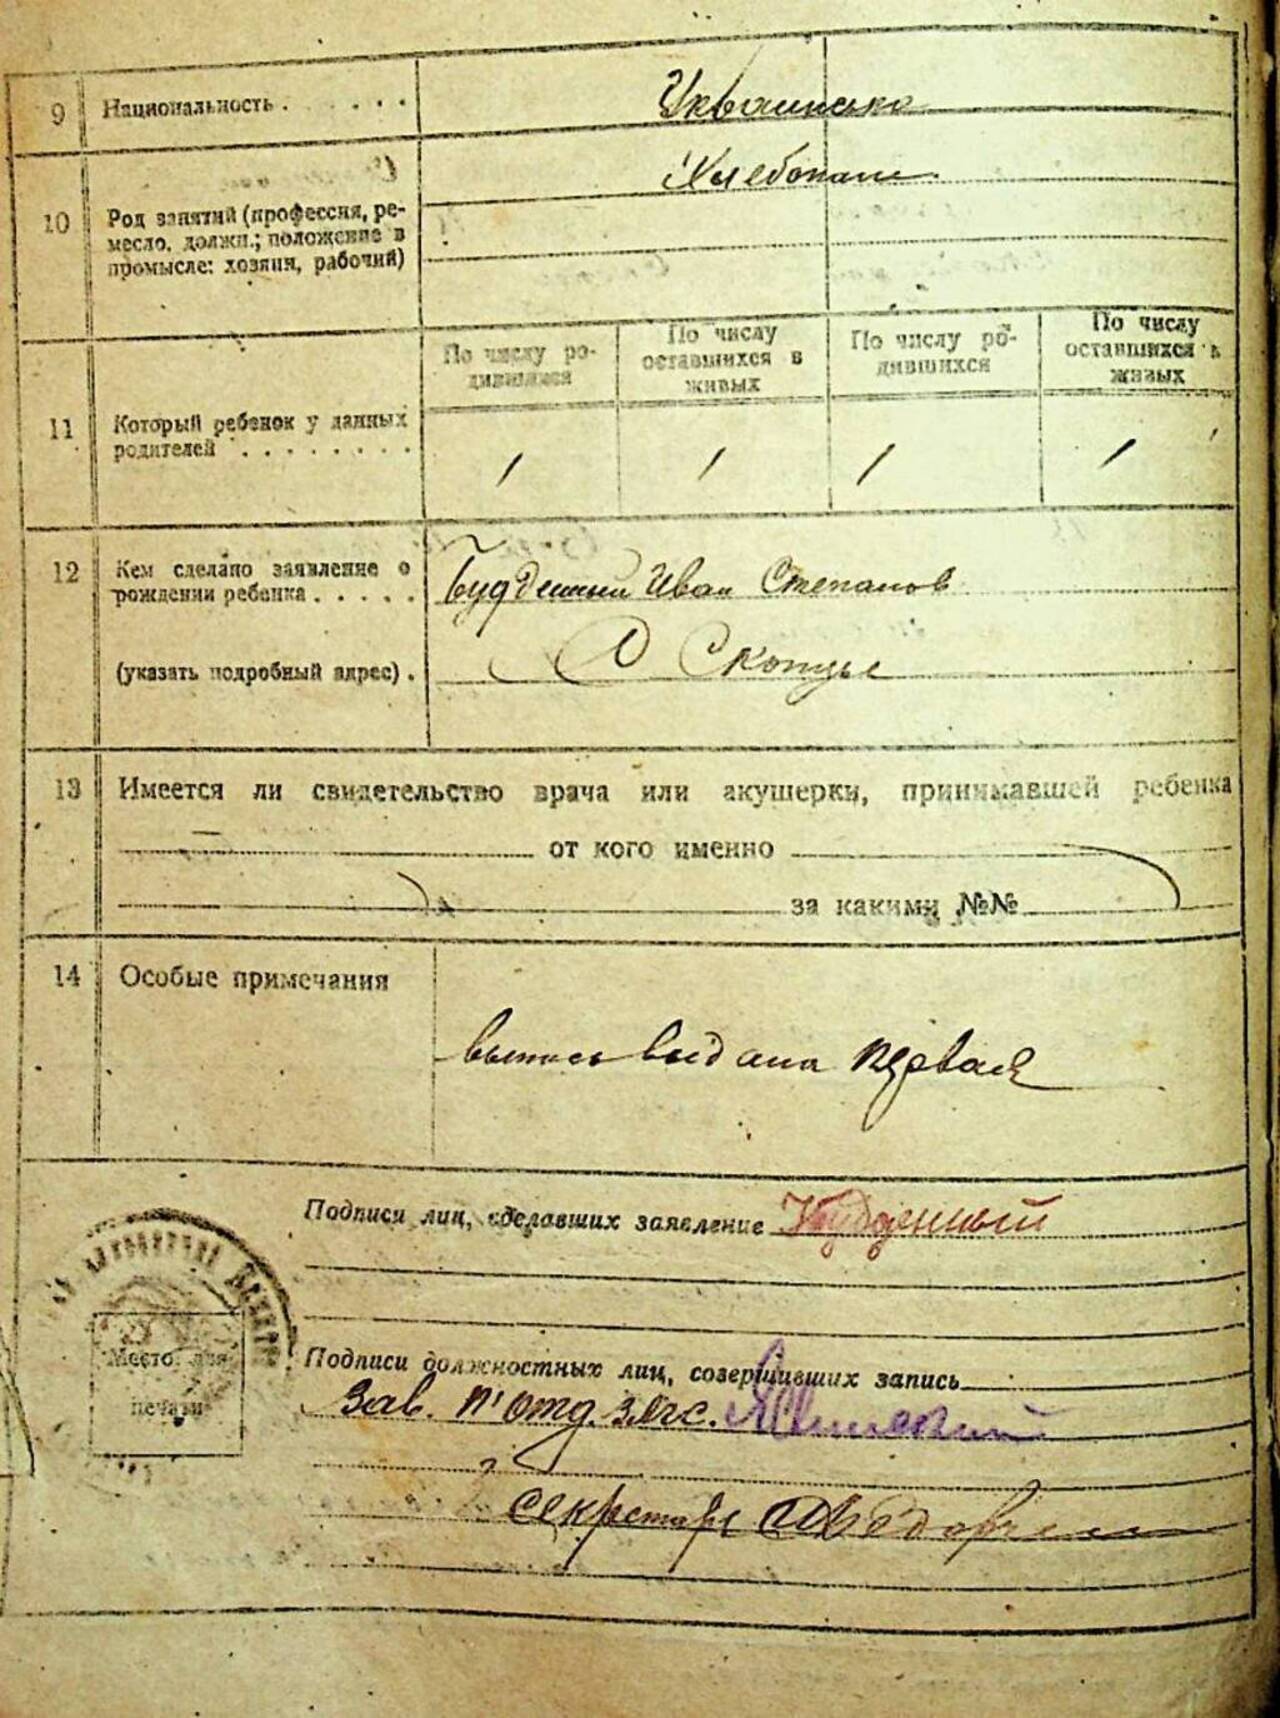 9 Национальность . . . . . . Украинська
Хлебопаш.
10 Род занятий (профессия, ре-
месло, должн.; положение в
промысле: хозяин, рабочий)
По числу ро-
дившихся
По числу
оставшихся в
живых
По числу ро-
дившихся
По числу
оставшихся в
живых
11 Который ребенок у данных
родителей . . . . . . . . 1 1 1 1
12 Кем сделано заявление о
рождении ребенка . . . . . Буденный Иван Степанов
(указать подробный адрес) .
13 Имеется ли свидетельство врача или акушерки, принимавшей ребенка
— от кого именно
за какими №№
14 Особые примечания
выпись выдана первая
Подписи лиц, сделавших заявление Буденный
Подписи должностных лиц, совершивших запись
Зав. п'отд. загс.
Секретарь
Место для
печати